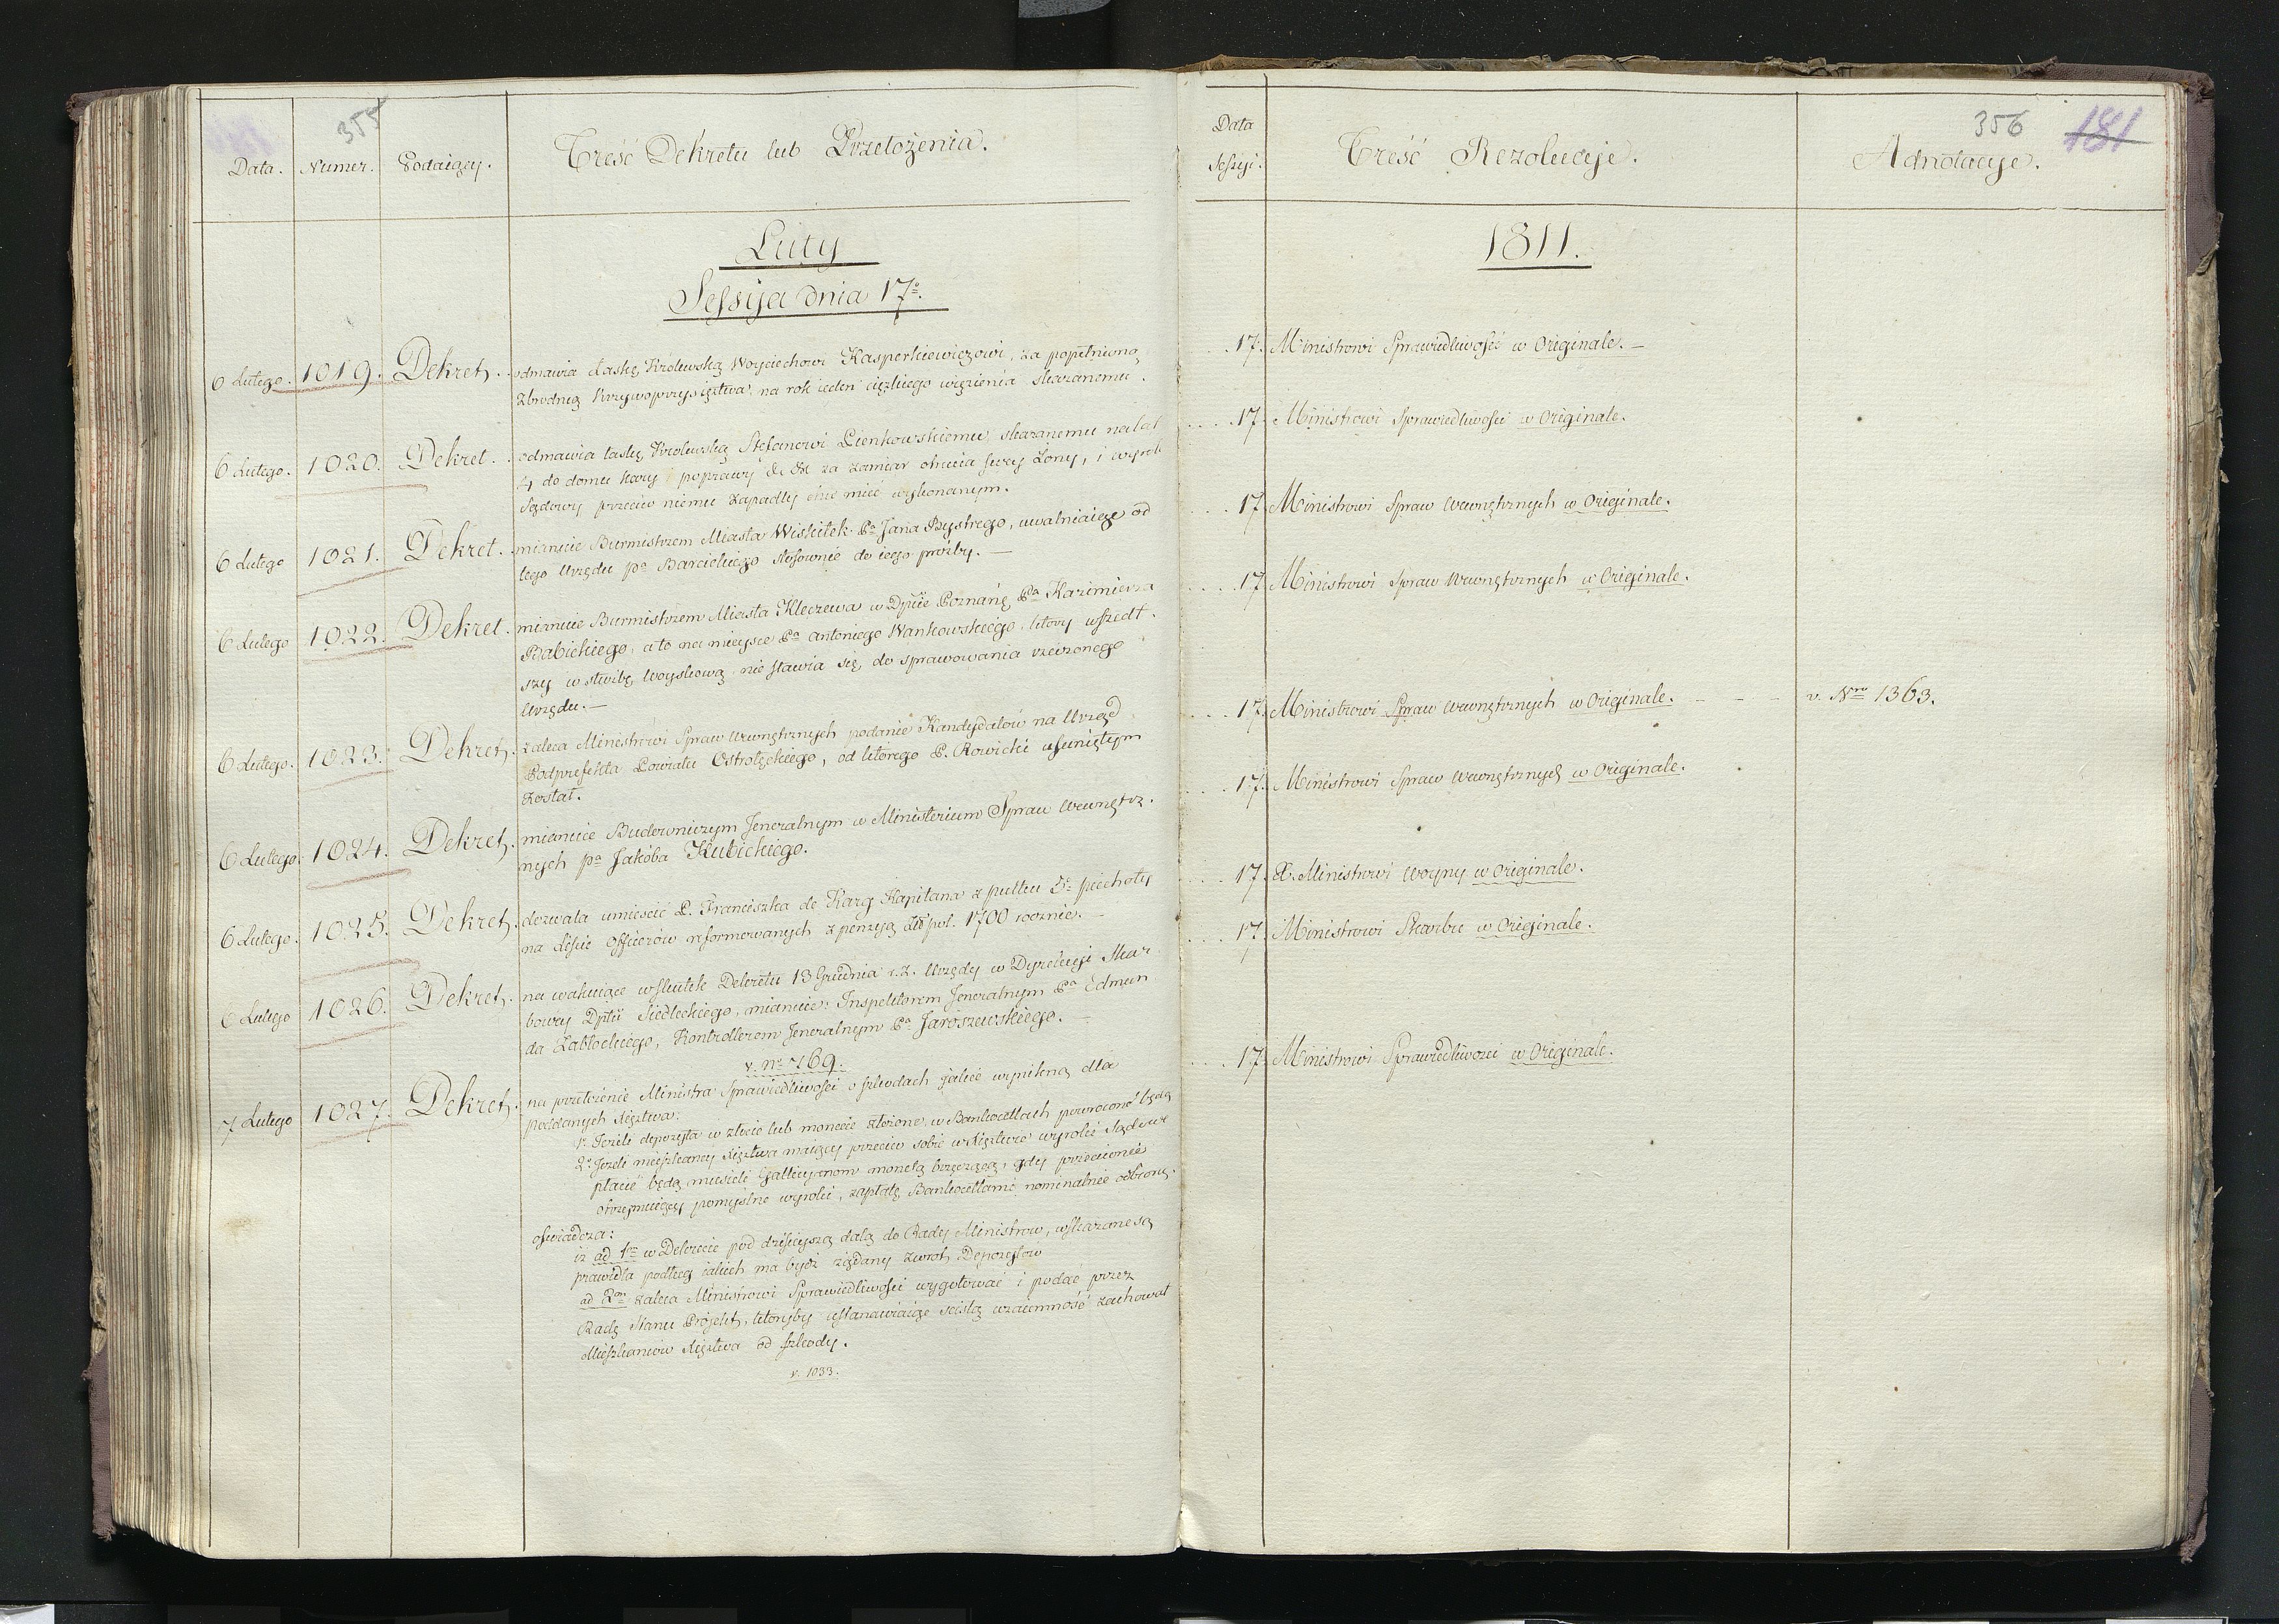 355
Data. Numer. Podaiący. Treść Dekretu lub Przełożenia.
Luty
Sessyia dnia 17º.
6 Lutego. 1019. Dekret. odmawia Łaskę Królewską Woyciechowi Kasperkiewiczowi, za popełnioną
zbrodnią krzywoprzysięztwa, na rok ieden cięzkiego więzienia skazanemu.
6 Lutego. 1020. Dekret. odmawia łaskę Królewską Stefanowi Pienkowskiemu, skazanemu na lat
4 do domu kary i poprawy & & za zamiar otrucia swey żony, i wyrok
Sądowy przeciw niemu zapadły chce mieć wykonanym.
6 Lutego 1021. Dekret. mianuie Burmistrzem Miasta Wiskitek Pª Jana Bystrego, uwalniaiąc od
tego Urzędu pª Barcickiego stosownie do iego prośby. —
6 Lutego 1022. Dekret. mianuie Burmistrzem Miasta Kleczewa w Dpcie Poznanę Pª Kazimierza
Babickiego, a to na mieysce Pª Antoniego Wankowskiego, który wszedł-
szy w służbę woyskową nie stawia się do sprawowania rzeczonego
Urzędu. —
6 Lutego. 1023. Dekret. zaleca Ministrowi Spraw Wewnętrznych podanie Kandydatów na Urząd
Podprefekta Powiatu Ostrołęckiego, od którego P. Rowicki usuniętym
został.
6 Lutego. 1024. Dekret. mianuie Budowniczym Jeneralnym w Ministerium Spraw Wewnętrz-
nych pª Jakóba Kubickiego.
6 Lutego. 1025. Dekret. dozwala umieścić P. Franciszka de Karg Kapitana z pułku 5º piechoty
na liście officerów reformowanych z pensyą Złł pol. 1700 rocznie. —
6 Lutego 1026. Dekret. na wakuiące wskutek Dekretu 13 Grudnia r.z. Urzędy w Dyrekcyi Skar-
bowey Dpttu Siedleckiego, mianuie: Inspektorem Jeneralnym Pª Edmun
da Zabłockiego, Kontrollerem Jeneralnym Pª Jaroszewskiego. —
v. nº 769.
7 Lutego 1027. Dekret. na przełożenie Ministra Sprawiedliwości o szkodach jakie wynikną dla
poddanych Xięztwa:
1º Jeżeli depozyta w złocie lub monecie złożone, w Bankocetlach powrócone będą
2º Jeżeli mieszkańcy Xięztwa maiący przeciw sobie w Xięztwie wyroki Sądowe
płacić będą musieli Gallicyanom monetą brzęczącą, gdy przeciwnie
otrzymuiący pomyślne wyroki, zapłatę Bankocetlami nominalnie odbiorą.
oświadcza:
iż ad 1m w Dekrecie pod dzisieyszą datą do Rady Ministrów, wskazane są
prawidła podług iakich ma bydź żądany zwrot Depozytów
ad 2m zaleca Ministrowi Sprawiedliwości wygotować i podać przez
Radę Stanu Projekt, któryby ustanawiaiąc ścisłą wzaiemność zachował
Mieszkańców Xięztwa od szkody.
v. 1033.
356 181
Data Sessyi. Treść Rezolucyie. Adnotacye.
1811.
17. Ministrowi Sprawiedliwości w Originale. —
17. Ministrowi Sprawiedliwości w Originale.
17. Ministrowi Spraw Wewnętrznych w Originale.
17. Ministrowi Spraw Wewnętrznych w Originale.
17. Ministrowi Spraw Wewnętrznych w Originale. - - - v. Nro 1363.
17. Ministrowi Spraw Wewnętrznych w Originale.
17. X. Ministrowi Woyny w Originale.
17. Ministrowi Skarbu w Originale.
17. Ministrowi Sprawiedliwości w Originale.